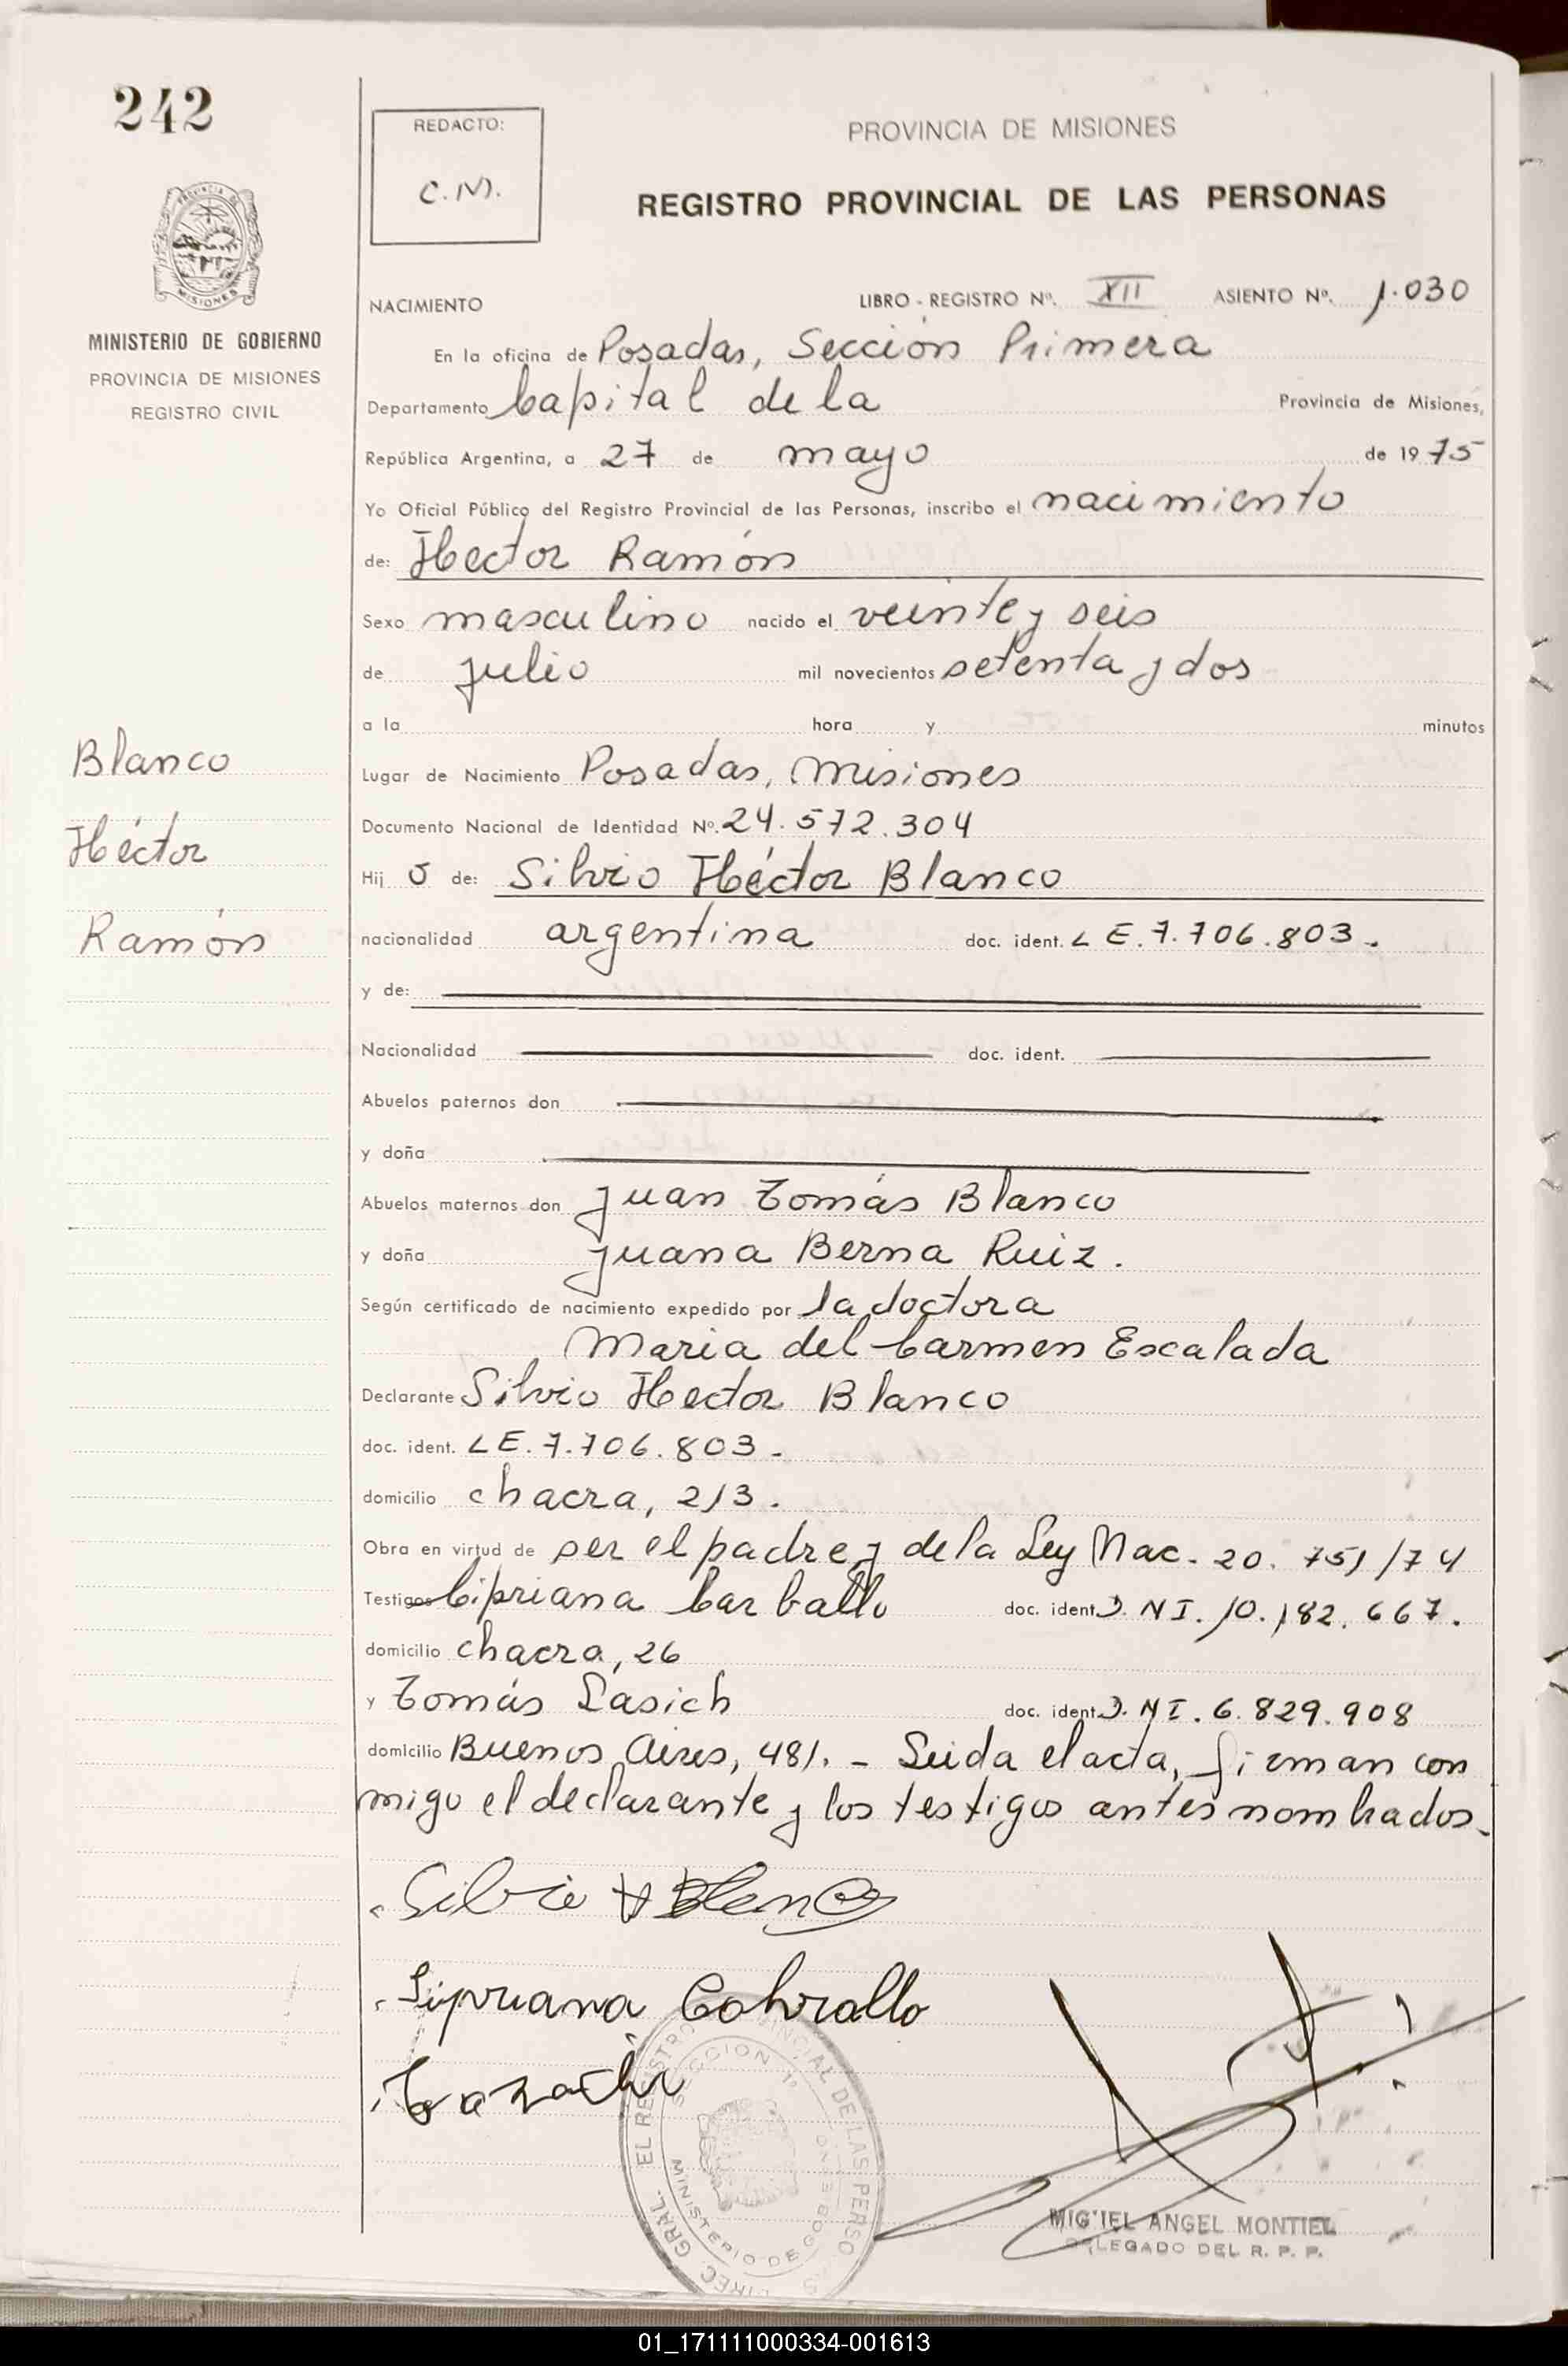 242
REDACTO:
C.M.
PROVINCIA DE MISIONES
REGISTRO PROVINCIAL DE LAS PERSONAS
MISIONES
MINISTERIO DE GOBIERNO
PROVINCIA DE MISIONES
REGISTRO CIVIL
NACIMIENTO LIBRO - REGISTRO Nº. XII ASIENTO Nº. 1.030
En la oficina de Posadas, Sección Primera
Departamento Capital de la Provincia de Misiones,
República Argentina, a 27 de mayo de 1975
Yo Oficial Público del Registro Provincial de las Personas, inscribo el nacimiento
de: Hector Ramón
Sexo masculino nacido el veinte y seis
de julio mil novecientos setenta y dos
a la hora y minutos
Blanco
Héctor
Ramón
Lugar de Nacimiento Posadas, Misiones
Documento Nacional de Identidad Nº. 24.572.304
Hij o de: Silvio Héctor Blanco
nacionalidad argentina doc. ident. LE.7.706.803.
y de:
Nacionalidad doc. ident.
Abuelos paternos don
y doña
Abuelos maternos don Juan Tomás Blanco
y doña Juana Berna Ruiz.
Según certificado de nacimiento expedido por la doctora
Maria del Carmen Escalada
Declarante Silvio Hector Blanco
doc. ident. LE.7.706.803.
domicilio chacra, 213.
Obra en virtud de ser el padre y de la Ley Nac. 20.751/74
Testigos Cipriana Carballo doc. ident. D.NI.10.182.667.
domicilio chacra, 26
y Tomás Lasich doc. ident. D.NI.6.829.908
domicilio Buenos Aires, 481. - Leida el acta, firman con
migo el declarante y los testigos antes nombrados.
Silvio H Blanco
Sipriana Cobrallo
DIREC. GRAL. EL REGISTRO PROVINCIAL DE LAS PERSONAS
SECCION 1ª
MINISTERIO DE GOBIERNO
MIGUEL ANGEL MONTIEL
DELEGADO DEL R. P. P.
01_171111000334-001613